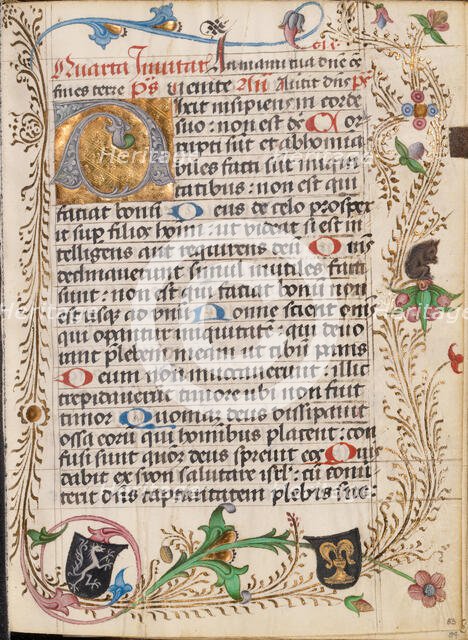 Quarta Invitat In manu tua dñe oes
fines terre Ps Venite Añ Avertit dñs Ps
Dixit insipiens in corde
suo : non est ds Cor
rupti sūt et abhomīa
biles facti sūt iniqui
tatibus : non est qui
faciat bonū Deus de celo prospex
it sup filios hoīm : ut videat si est in
telligens aut requirens deū Oms
declinaverunt simul inutiles facti
sunt : non est qui faciat bonū non
est usque ad unū Nonne scient oms
qui operantur iniquitatē : qui devo
rant plebem meam ut cibū panis
Deum non invocaverunt : illic
trepidaverūt timore ubi non fuit
timor Quoniam deus dissipavit
ossa eorū qui hominibus placent : con
fusi sunt quoniā deus sprevit eos Quis
dabit ex syon salutare isrl : cū conv
terit dñs captivitatem plebis sue
Heritage
83